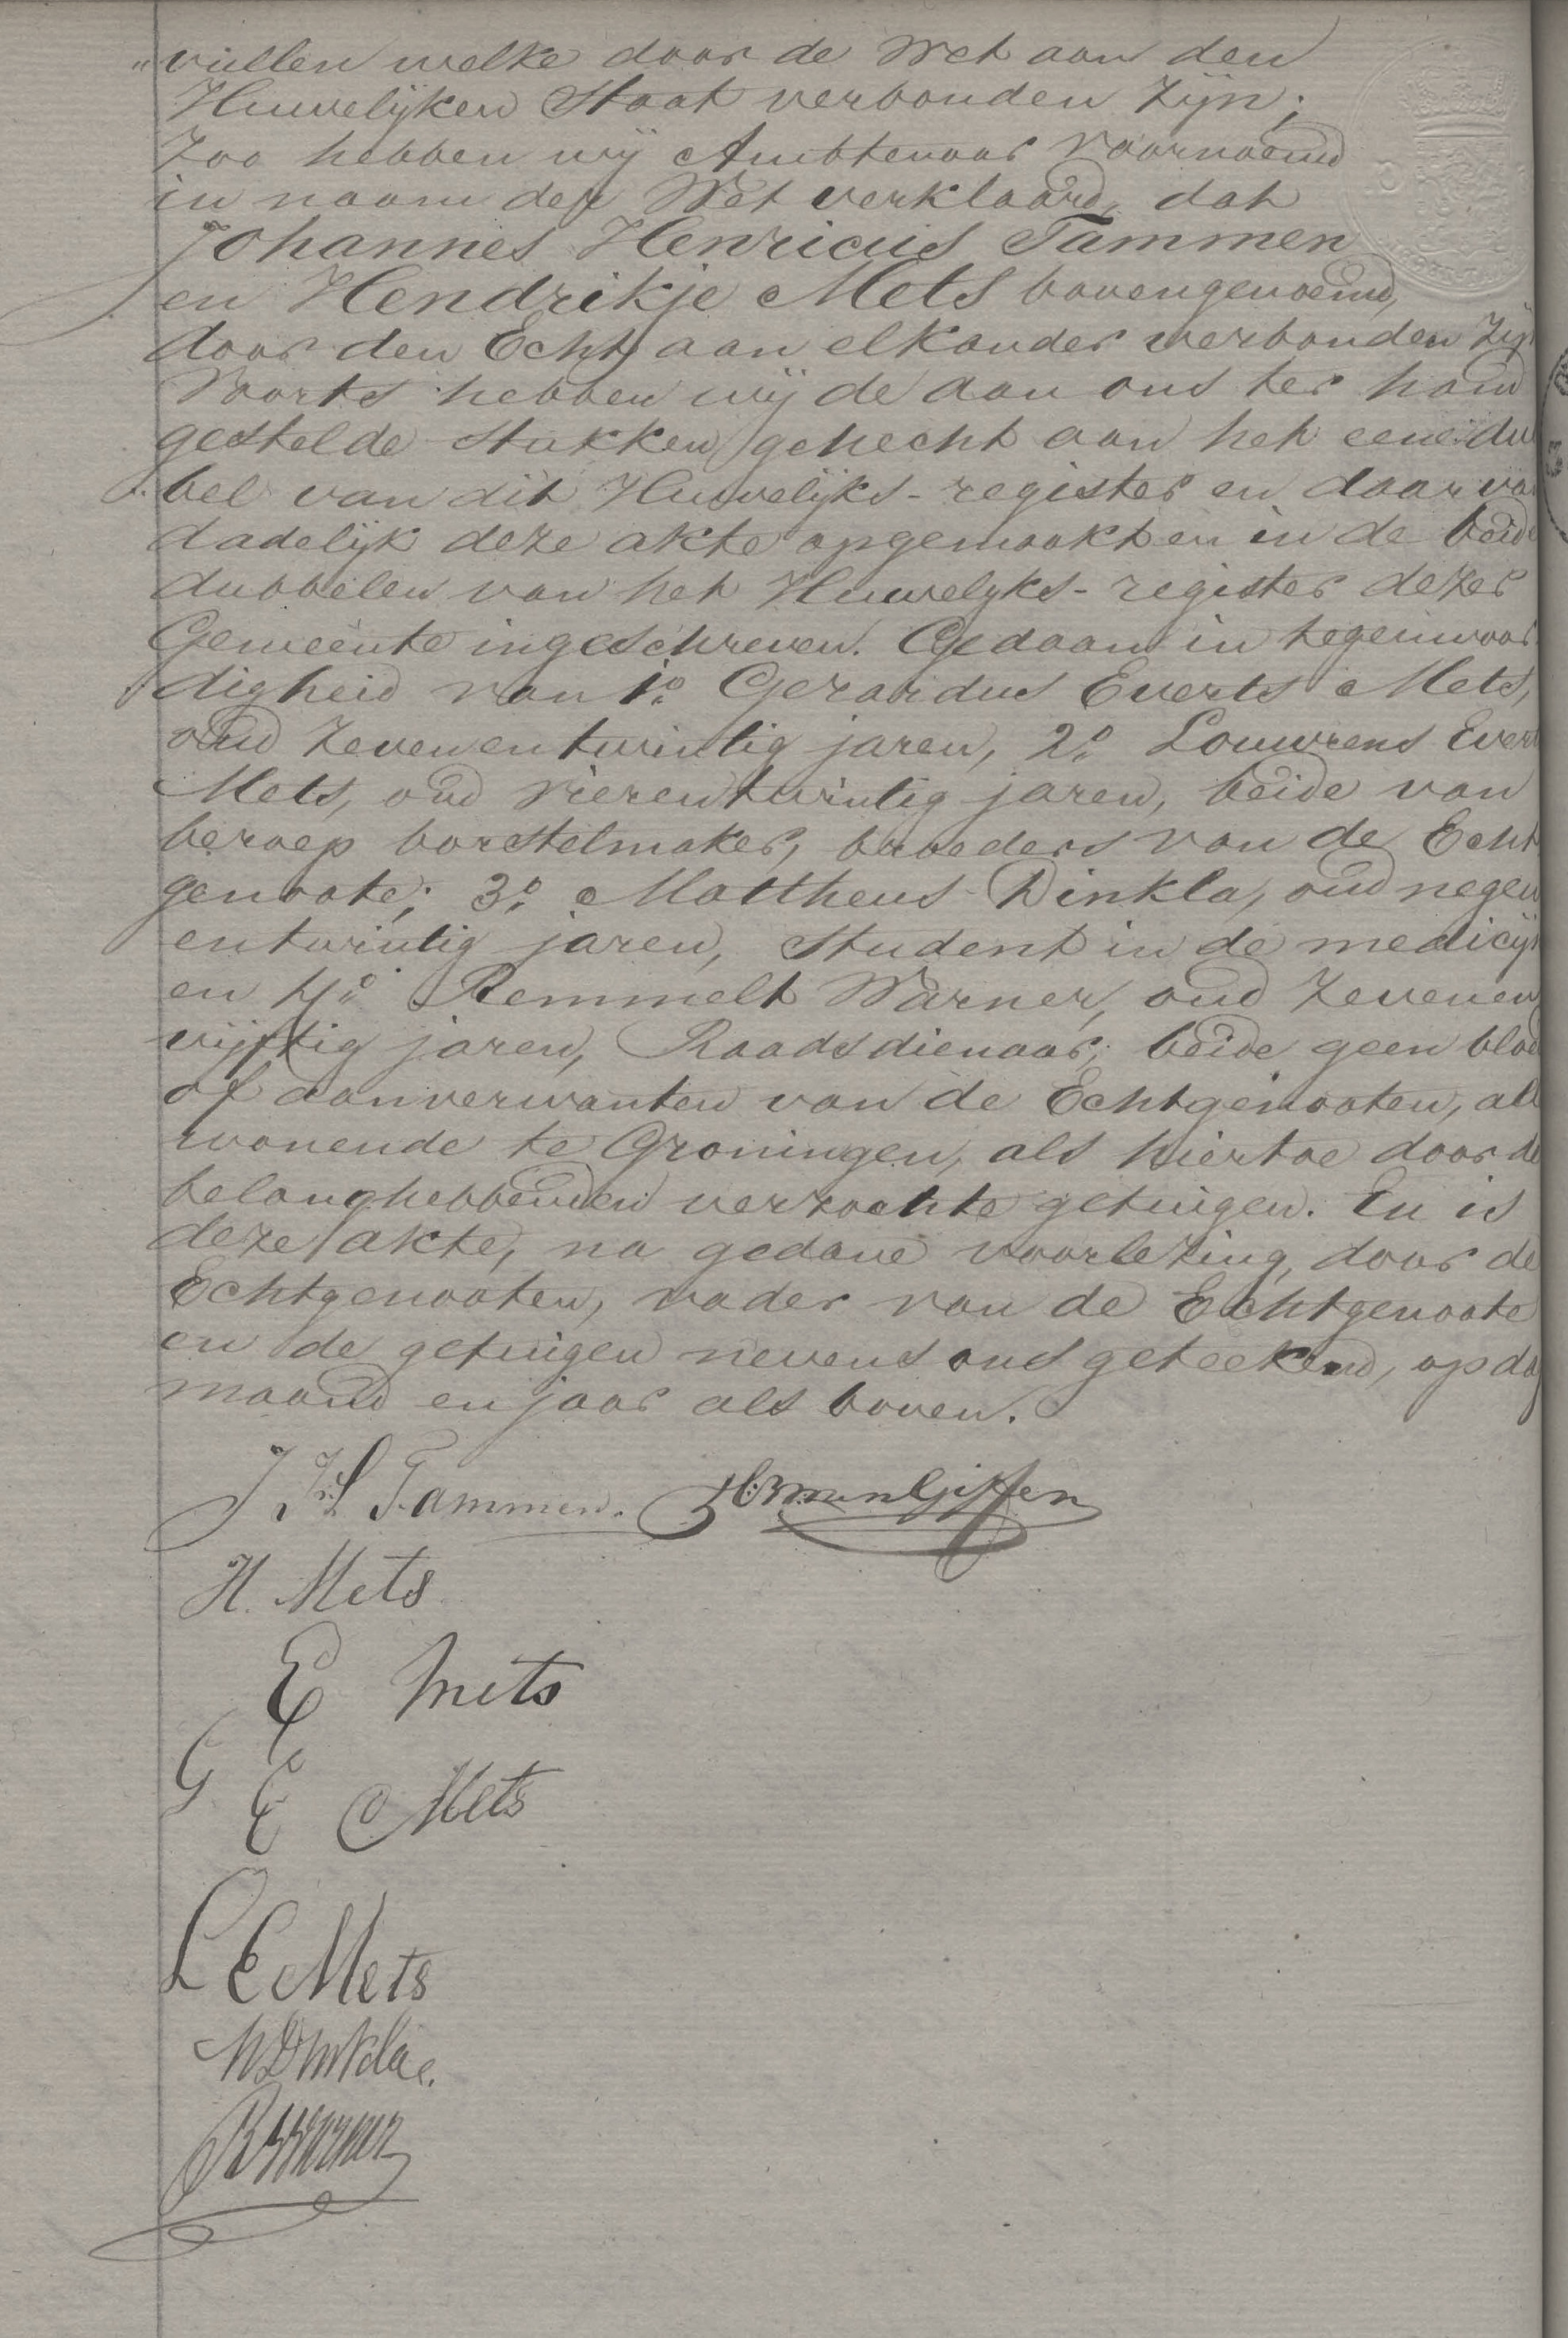 „vullen welke door de Wet aan den
Huwelijken Staat verbonden zijn;
Zoo hebben wij Ambtenaar voornoemd
in naam der Wet verklaard, dat
Johannes Henricus Tammen
en Hendrikje Mets bovengenoemd,
door den Echt aan elkander verbonden zijn
Voorts hebben wij de aan ons ter hand
gestelde stukken gehecht aan het eene du
bel van dit Huwelijks-register en daar van
dadelijk deze akte opgemaakt en in de beide
dubbelen van het Huwelyks-register dezer
Gemeente ingeschreven. Gedaan in tegenwoor
digheid van 1o. Gerardus Everts Mets,
oud zevenentwintig jaren, 2o. Louwrens Evert
Mets, oud vierentwintig jaren, beide van
beroep borstelmaker, broeders van de Echt
genoote; 3o. Mattheus Dinkla, oud negen
entwintig jaren, student in de medicijn
en 4o. Remmelt Warner, oud zevenen
vijftig jaren, Raadsdienaar, beide geen bloed
of aanverwanten van de Echtgenooten, all
wonende te Groningen, als hiertoe door de
belanghebbenden verzochte getuigen. En is
deze akte, na gedane voorlezing, door de
Echtgenooten, vader van de Echtgenoote
en de getuigen nevens ons geteekend, op dag
maand en jaar als boven.
J H Tammen.
H. Mets
E Mets
G E Mets
L E Mets
M Dinkla.
R Warner